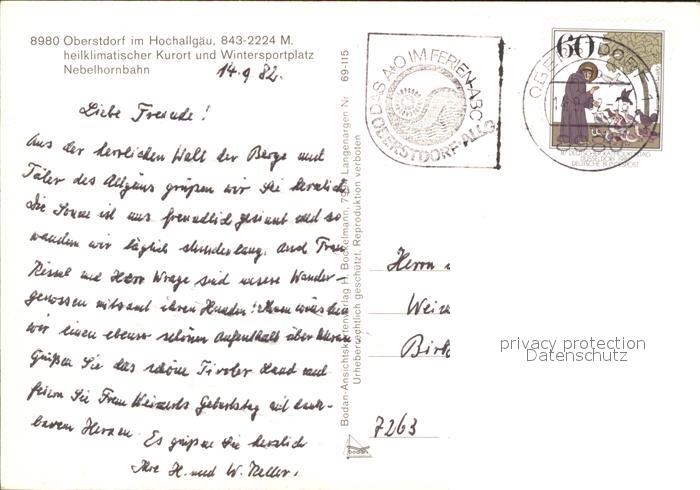 8980 Oberstdorf im Hochallgäu, 843-2224 M.
heilklimatischer Kurort und Wintersportplatz
Nebelhornbahn
14.9.82.
Liebe Freunde!
Aus der herrlichen Welt der Berge und
Täler des Allgäus grüßen wir Sie herzlich
Die Sonne ist uns freundlich gesinnt und so
wandern wir täglich stundenlang. Auch Frau
und Herr Wrage sind unsere Wander-
genossen mitsamt ihren Hunden! Ihnen wünschen
wir einen ebenso schönen Aufenthalt
Grüßen Sie das schöne Tiroler Land und
feiern Sie Frau Geburtstag mit dank-
barem Herzen. Es grüßen Sie herzlich
Ihre H. und W. Keller.
69-115
Bodan-Ansichtskartenverlag H. Bockelmann, 7994 Langenargen Nr
Urheberrechtlich geschützt. Reproduktion verboten
bodan
DAS A+O IM FERIEN-ABC
OBERSTDORF-ALLG.
60
OBERSTDORF
8980
87. DEUTSCHER KATHOLIKENTAG
DÜSSELDORF
DEUTSCHE BUNDESPOST
Herrn
7263
privacy protection
Datenschutz